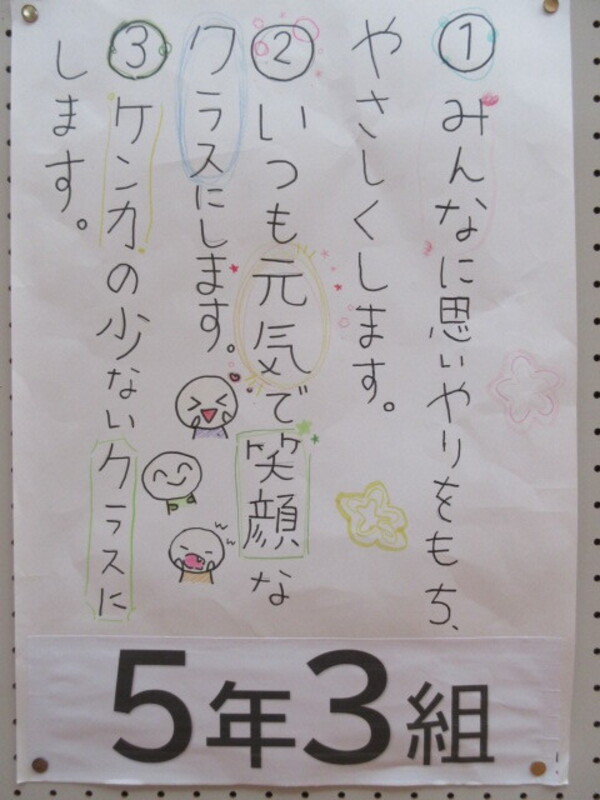 ①みんなに思いやりをもち、
やさしくします。
②いつも元気で笑顔な
クラスにします。
③ケンカの少ないクラスに
します。
5年3組